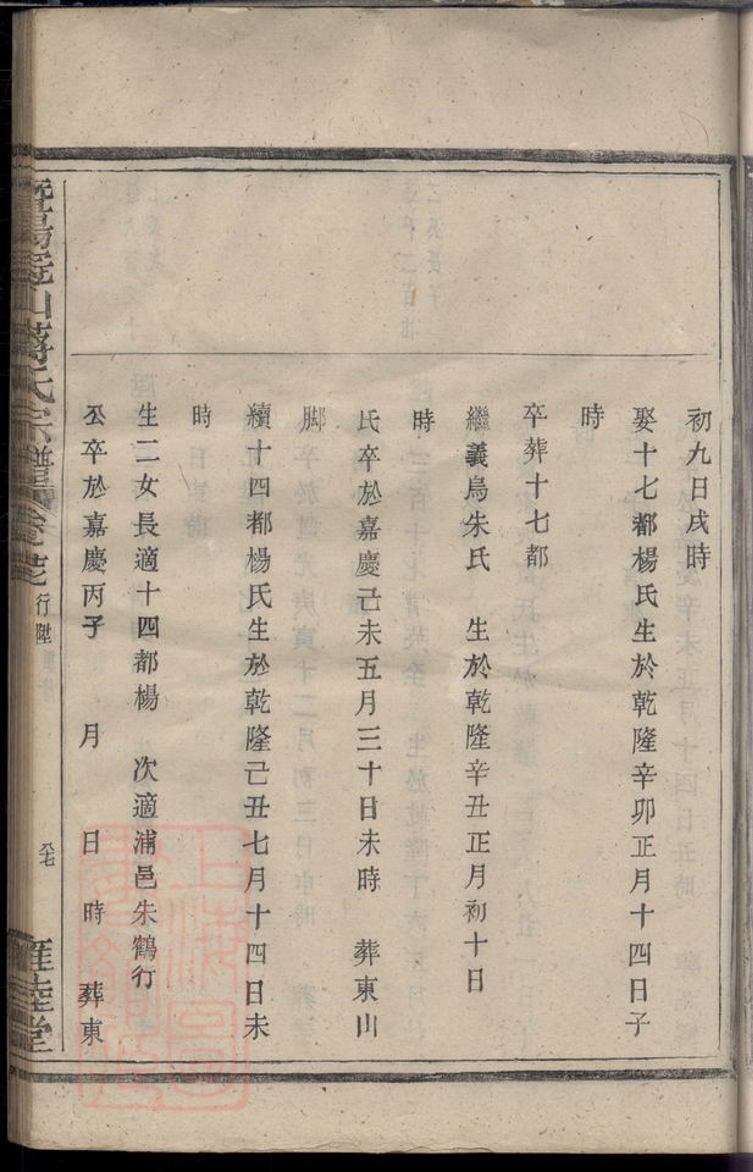 初九日戌時
娶十七都楊氏生於乾隆辛卯正月十四日子
時
卒葬十七都
繼義烏朱氏　生於乾隆辛丑正月初十日
時
氏卒於嘉慶己未五月三十日未時　葬東山
脚
續十四都楊氏生於乾隆己丑七月十四日未
時
生二女長適十四都楊　次適浦邑朱鶴行
公卒於嘉慶丙子　月　日　時　葬東
暨陽　山蔣氏宗譜卷　行陞